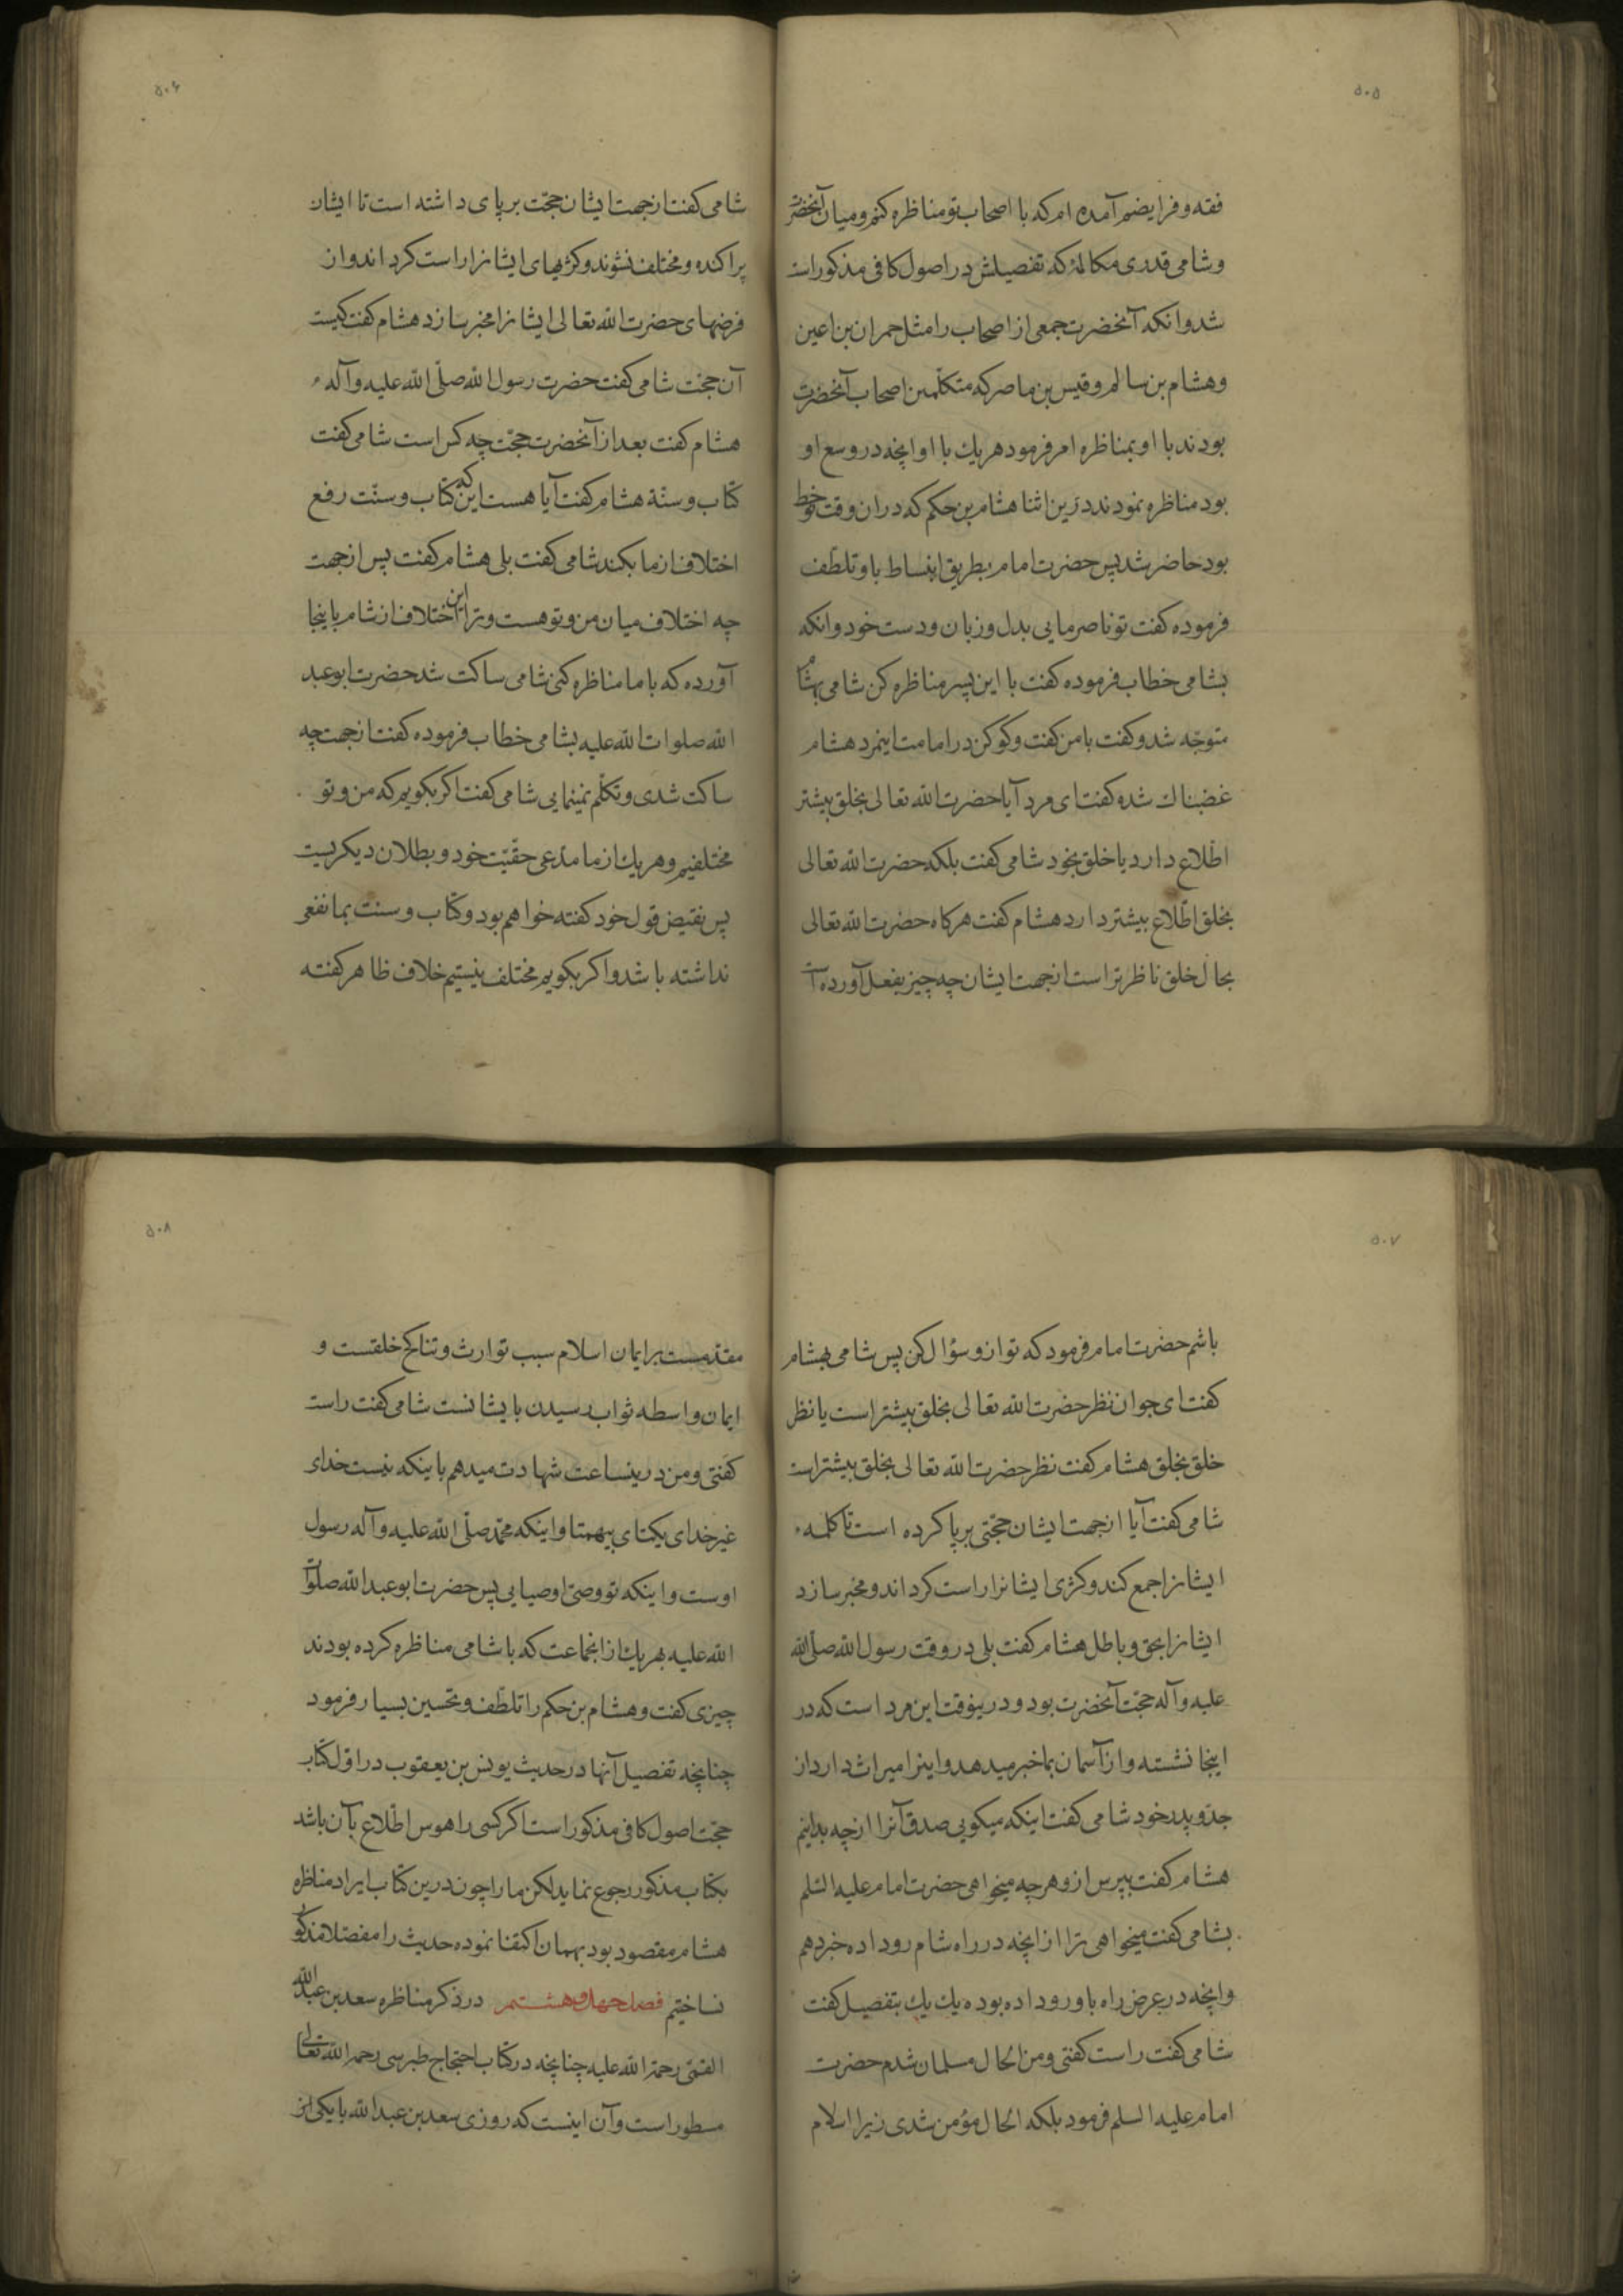 ۵۰۵
فقه و فرایضم آمده ام که با اصحاب تو مناظره کنم و میان آنحضرت
و شامی قدری مکالمۀ که تفصیلش در اصول کافی مذکور است
شد و انکه آنحضرت جمعی از اصحاب را مثل حمران بن اعین
و هشام بن سالم و قیس بن ماصر که متکلّمین اصحاب آنحضرت
بودند با او بمناظره امر فرمود هر یك با او انچه در وسع او
بود مناظره نمودند درین اثنا هشام بن حکم که در ان وقت نوخط
بود حاضر شد پس حضرت امام بطریق انبساط باو تلطّف
فرموده کفت تو ناصر مایی بدل و زبان و دست خود و انکه
بشامی خطاب فرموده کفت با این پسر مناظره کن شامی بهشام
متوجّه شد و کفت با من کفت و کو کن در امامت اینمرد هشام
غضبناك شده کفت ای مرد آیا حضرت الله تعالی بخلق بیشتر
اطّلاع دارد یا خلق بخود شامی کفت بلکه حضرت الله تعالی
بخلق اطّلاع بیشتر دارد هشام کفت هر کاه حضرت الله تعالی
بحال خلق ناظرتر است ازجهت ایشان چه چیز بفعل آورده است
۵۰۶
شامی کفت ازجهت ایشان حجّت بر پای داشته است تا ایشان
پراکنده و مختلف نشوند و کژیهای ایشانرا راست کرداند و از
فرضهای حضرت الله تعالی ایشانرا مخبر سازد هشام کفت کیست
آن حجّت شامی کفت حضرت رسول الله صلّی الله علیه و آله
هشام کفت بعد از آنحضرت حجّت چه کس است شامی کفت
کتاب و سنّة هشام کفت آیا هست این که کتاب و سنّت رفع
اختلاف از ما بکند شامی کفت بلی هشام کفت پس ازجهت
چه اختلاف میان من و تو هست و ترا این اختلاف از شام باینجا
آورده که با ما مناظره کنی شامی ساکت شد حضرت ابو عبد
الله صلوات الله علیه بشامی خطاب فرموده کفت ازجهت چه
ساکت شدی و تکلّم نمینمایی شامی کفت اکر بکویم که من و تو
مختلفیم و هر یك از ما مدّعی حقّیّت خود و بطلان دیکریست
پس نقیض قول خود کفته خواهم بود و کتاب و سنت بما نفعی
نداشته باشد و اکر بکویم مختلف نیستیم خلاف ظاهر کفته
۵۰۷
باشم حضرت امام فرمود که تو ازو سؤال کن پس شامی بهشام
کفت ای جوان نظر حضرت الله تعالی بخلق بیشتر است یا نظر
خلق بخلق هشام کفت نظر حضرت الله تعالی بخلق بیشتر است
شامی کفت آیا ازجهت ایشان حجّتی بر پا کرده است تا کلمهٔ
ایشانرا جمع کند و کژی ایشانرا راست کرداند و مخبر سازد
ایشانرا بحق و باطل هشام کفت بلی در وقت رسول الله صلّی الله
علیه و آله حجّت آنحضرت بود و درینوقت این مرد است که در
اینجا نشسته و از آسمان بما خبر میدهد و اینرا میراث دارد از
جدّ و پدر خود شامی کفت اینکه میکویی صدق آنرا ازچه بدانیم
هشام کفت بپرس ازو هر چه میخواهی حضرت امام علیه السّلم
بشامی کفت میخواهی ترا از انچه در راه شام رو داده خبر دهم
وانچه در عرض راه باو رو داده بوده یك یك بتفصیل کفت
شامی کفت راست کفتی و من الحال مسلمان شدم حضرت
امام علیه السلم فرمود بلکه الحال مؤمن شدی زیرا اسلام
۵۰۸
مقدّمست بر ایمان اسلام سبب توارث و تناکح خلقست و
ایمان واسطه ثواب رسیدن بایشانست شامی کفت راست
کفتی و من درینساعت شهادت میدهم باینکه نیست خدای
غیر خدای یکتای بیهمتا و اینکه محمّد صلّی الله علیه و آله رسول
اوست و اینکه تو وصیّ اوصیایی پس حضرت ابو عبد الله صلوات
الله علیه بهر یك از انجماعت که با شامی مناظره کرده بودند
چیزی کفت و هشام بن حکم را تلطّف و تحسین بسیار فرمود
چنانچه تفصیل آنها در حدیث یونس بن یعقوب در اوّل کتاب
حجّت اصول کافی مذکور است اکر کسی را هوس اطّلاع بآن باشد
بکتاب مذکور رجوع نماید لکن ما را چون درین کتاب ایراد مناظره
هشام مقصود بود بهمان اکتفا نموده حدیث را مفصّلا مذکور
نساختیم فصل چهل و هشتم در ذکر مناظره سعد بن عبد الله
القمّی رحمة الله علیه چنانچه در کتاب احتجاج طبرسی رحمه الله تعالی
مسطور است و آن اینست که روزی سعد بن عبد الله با یکی از